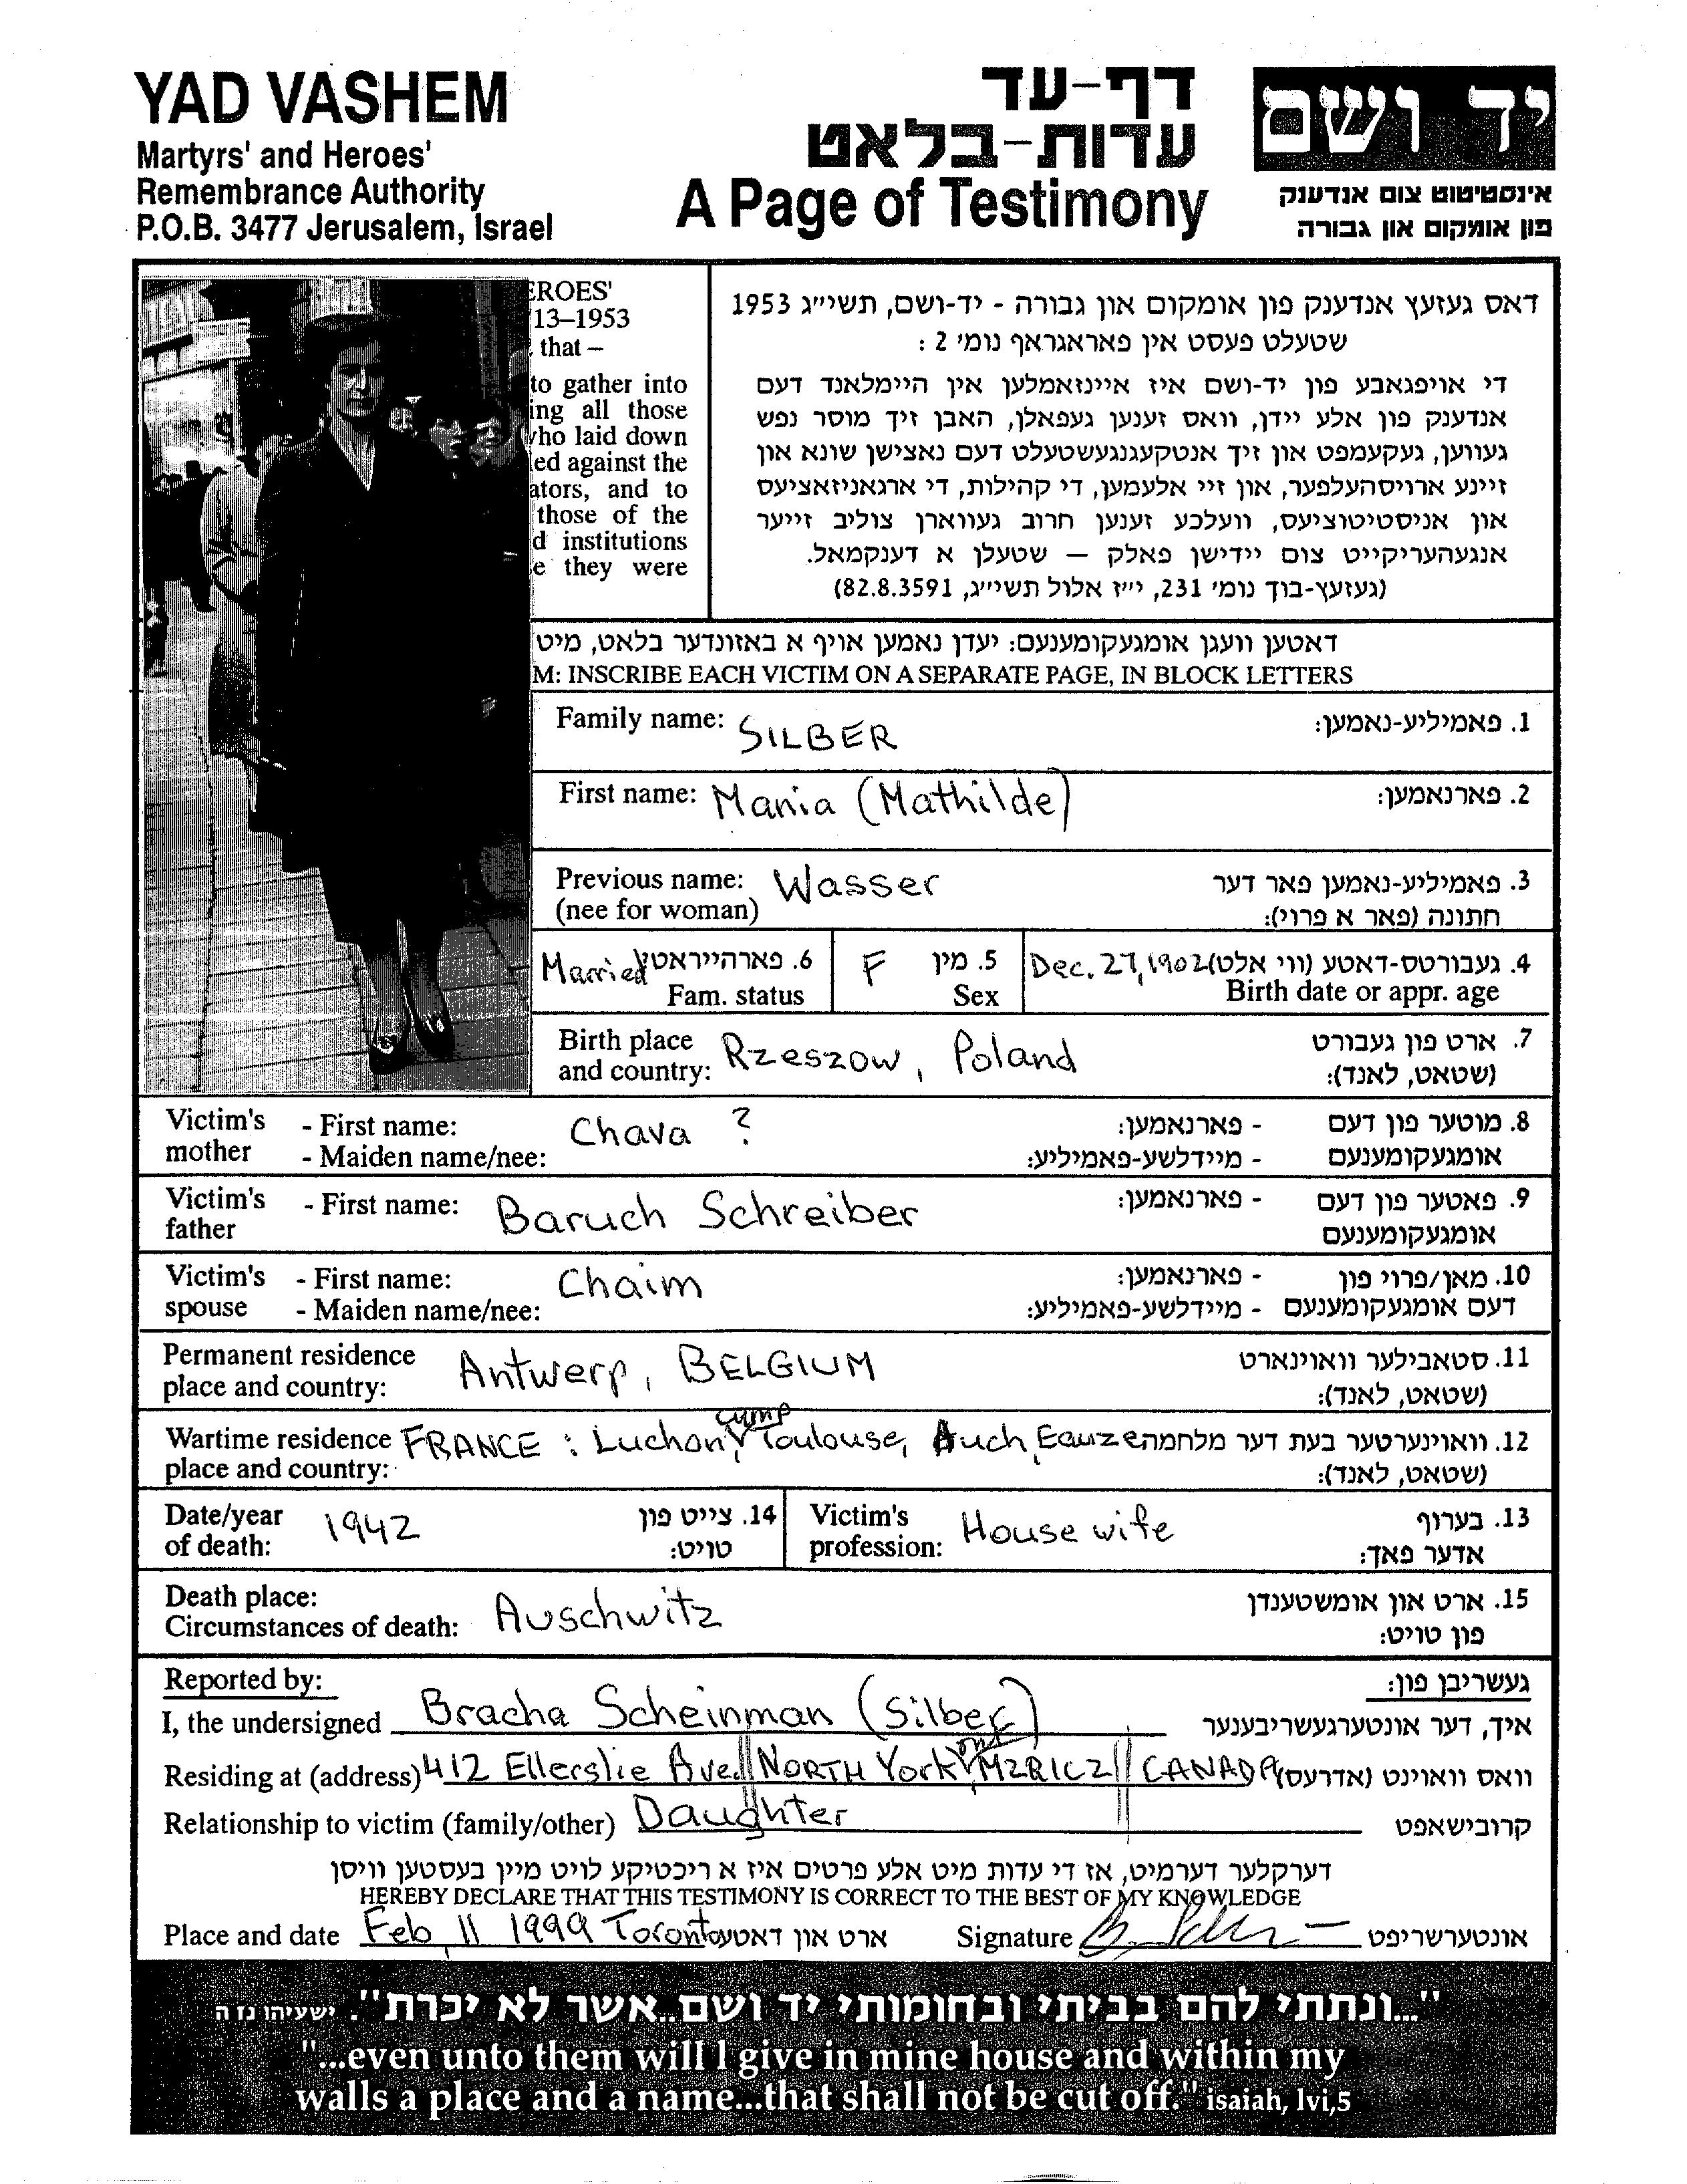 YAD VASHEM
Martyrs' and Heroes'
Remembrance Authority
P.O.B. 3477 Jerusalem, Israel
דף-עד
עדות-בלאט
A Page of Testimony
יד ושם
אינסטיטוט צום אנדענק
פון אומקום און גבורה
EROES'
13–1953
that –
to gather into
ing all those
who laid down
ed against the
ators, and to
those of the
d institutions
e they were
דאס געזעץ אנדענק פון אומקום און גבורה - יד-ושם, תשי״ג 1953
שטעלט פעסט אין פאראגראף נומ׳ 2 :
די אויפגאבע פון יד-ושם איז איינזאמלען אין היימלאנד דעם
אנדענק פון אלע יידן, וואס זענען געפאלן, האבן זיך מוסר נפש
געווען, געקעמפט און זיך אנטקעגנגעשטעלט דעם נאצישן שונא און
זיינע ארויסהעלפער, און זיי אלעמען, די קהילות, די ארגאניזאציעס
און אניסטיטוציעס, וועלכע זענען חרוב געווארן צוליב זייער
אנגעהעריקייט צום יידישן פאלק — שטעלן א דענקמאל.
(געזעץ-בוך נומ׳ 231, י״ז אלול תשי״ג, 82.8.3591)
דאטען וועגן אומגעקומענעם: יעדן נאמען אויף א באזונדער בלאט, מיט
M: INSCRIBE EACH VICTIM ON A SEPARATE PAGE, IN BLOCK LETTERS
Family name: SILBER 1. פאמיליע-נאמען:
First name: Mania (Mathilde) 2. פארנאמען:
Previous name: Wasser 3. פאמיליע-נאמען פאר דער
(nee for woman) חתונה (פאר א פרוי):
Married 6. פארהייראט F 5. מין Dec. 27, 1902 4. געבורטס-דאטע (ווי אלט)
Fam. status Sex Birth date or appr. age
Birth place Rzeszow, Poland 7. ארט פון געבורט
and country: (שטאט, לאנד):
Victim's - First name: Chava ? - פארנאמען: 8. מוטער פון דעם
mother - Maiden name/nee: - מיידלשע-פאמיליע: אומגעקומענעם
Victim's - First name: Baruch Schreiber - פארנאמען: 9. פאטער פון דעם
father אומגעקומענעם
Victim's - First name: Chaim - פארנאמען: 10. מאן/פרוי פון
spouse - Maiden name/nee: - מיידלשע-פאמיליע: דעם אומגעקומענעם
Permanent residence Antwerp, BELGIUM 11. סטאבילער וואוינארט
place and country: (שטאט, לאנד):
camp
Wartime residence FRANCE : Luchon, Toulouse, Auch, Eauze 12. וואוינערטער בעת דער מלחמה
place and country: (שטאט, לאנד):
Date/year 1942 14. צייט פון Victim's House wife 13. בערוף
of death: טויט: profession: אדער פאך:
Death place: Auschwitz 15. ארט און אומשטענדן
Circumstances of death: פון טויט:
Reported by: געשריבן פון:
I, the undersigned Bracha Scheinman (Silber) איך, דער אונטערגעשריבענער
ont
Residing at (address) 412 Ellerslie Ave. NORTH York M2R1C2 CANADA וואס וואוינט (אדרעס)
Relationship to victim (family/other) Daughter קרובישאפט
דערקלער דערמיט, אז די עדות מיט אלע פרטים איז א ריכטיקע לויט מיין בעסטען וויסן
HEREBY DECLARE THAT THIS TESTIMONY IS CORRECT TO THE BEST OF MY KNOWLEDGE
Place and date Feb, 11 1999 Toronto ארט און דאטע Signature אונטערשריפט
"...ונתתי להם בביתי ובחומותי יד ושם..אשר לא יכרת". ישעיהו נז ה
"...even unto them will I give in mine house and within my
walls a place and a name...that shall not be cut off." isaiah, lvi,5